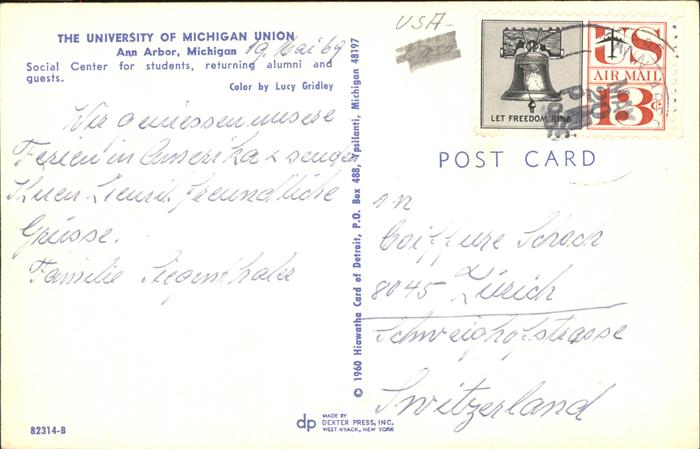 THE UNIVERSITY OF MICHIGAN UNION
Ann Arbor, Michigan 19. Mai 69
Social Center for students, returning alumni and
guests.
Color by Lucy Gridley
Wir geniessen unsere
Ferien in Amerika & senden
Ihnen freundliche
Grüsse.
Familie Siegenthaler
82314-B
© 1960 Hiawatha Card of Detroit, P.O. Box 488, Ypsilanti, Michigan 48197
MADE BY
dp DEXTER PRESS, INC.
WEST NYACK, NEW YORK
USA-
LET FREEDOM RING
US
AIR MAIL
13c
POST CARD
An
Coiffure Schoch
8045 Zürich
Schweighofstrasse
Switzerland